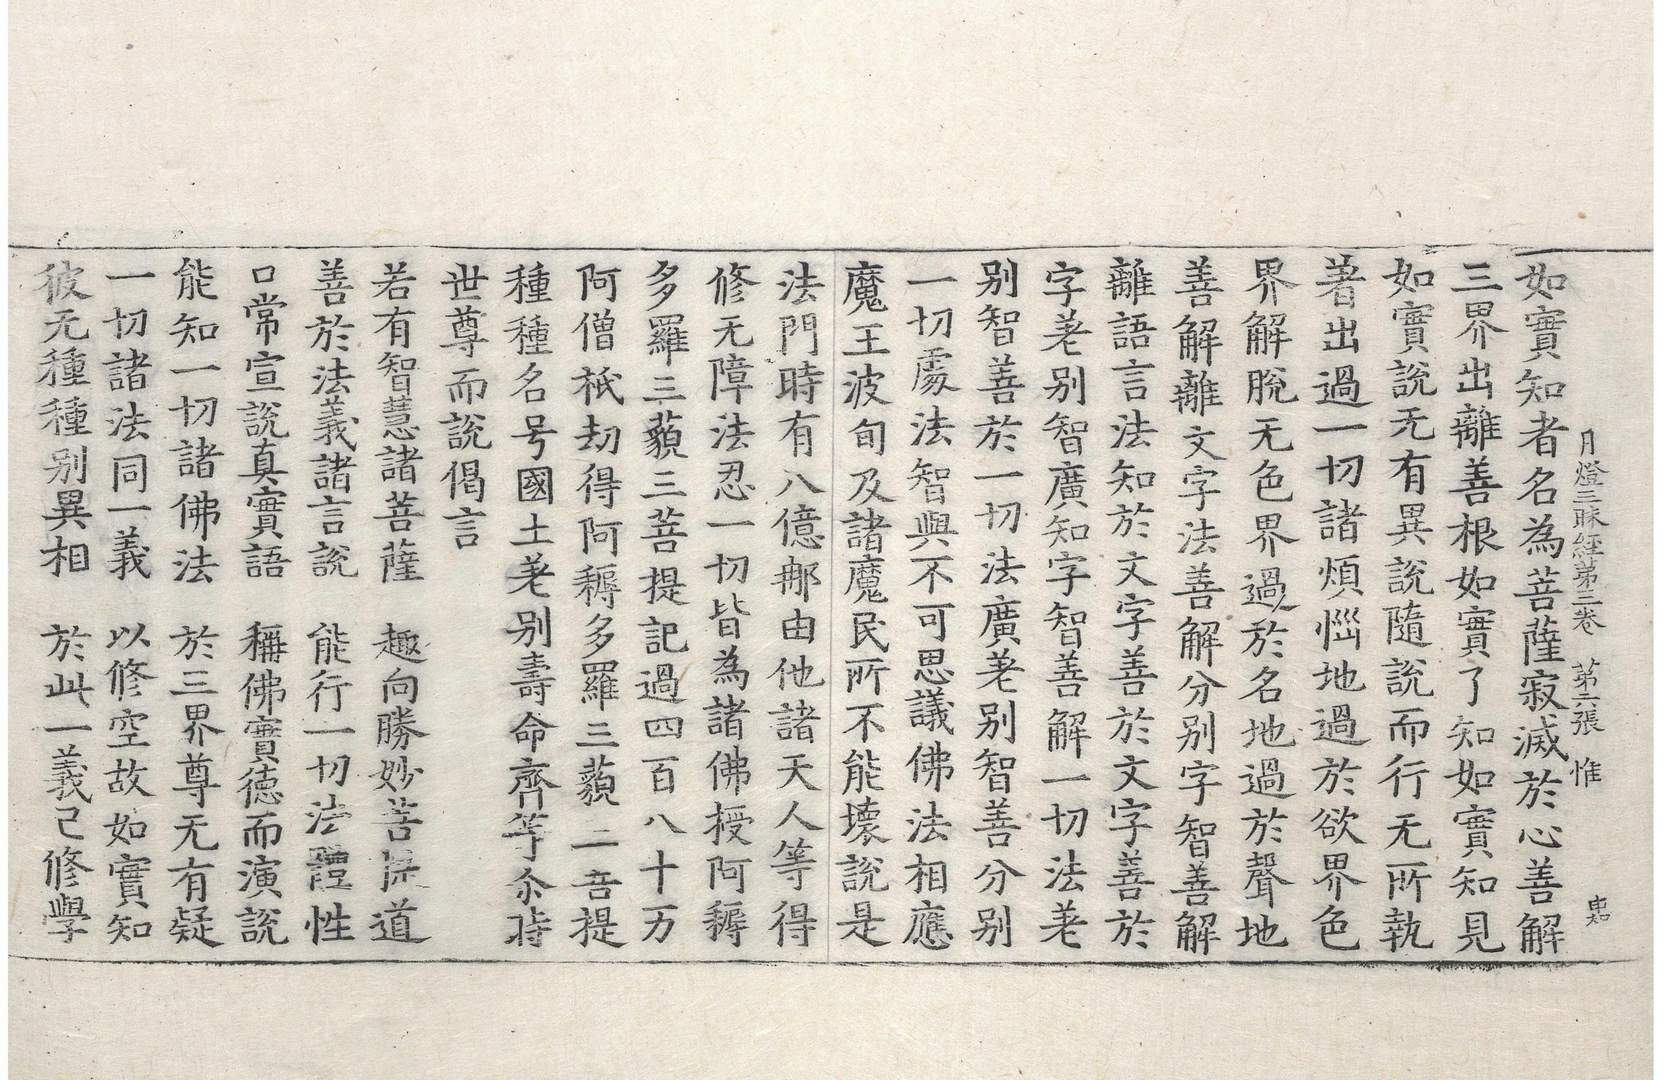 月燈三昧經第三卷　第六張　惟
忠知
如實知者名為菩薩寂滅於心善解
三界出離善根如實了知如實知見
如實說无有異說隨說而行无所執
著出過一切諸煩惱地過於欲界色
界解脫无色界過於名地過於聲地
善解離文字法善解分別字智善解
離語言法知於文字善於文字善於
字差別智廣知字智善解一切法差
別智善於一切法廣差別智善分別
一切處法智與不可思議佛法相應
魔王波旬及諸魔民所不能壞說是
法門時有八億那由他諸天人等得
修无障法忍一切皆為諸佛授阿耨
多羅三藐三菩提記過四百八十万
阿僧祇劫得阿耨多羅三藐三菩提
種種名号國土差別壽命齊等尒時
世尊而說偈言
若有智慧諸菩薩　趣向勝妙菩提道
善於法義諸言說　能行一切法體性
口常宣說真實語　稱佛實德而演說
能知一切諸佛法　於三界尊无有疑
一切諸法同一義　以修空故如實知
彼无種種別異相　於此一義已修學